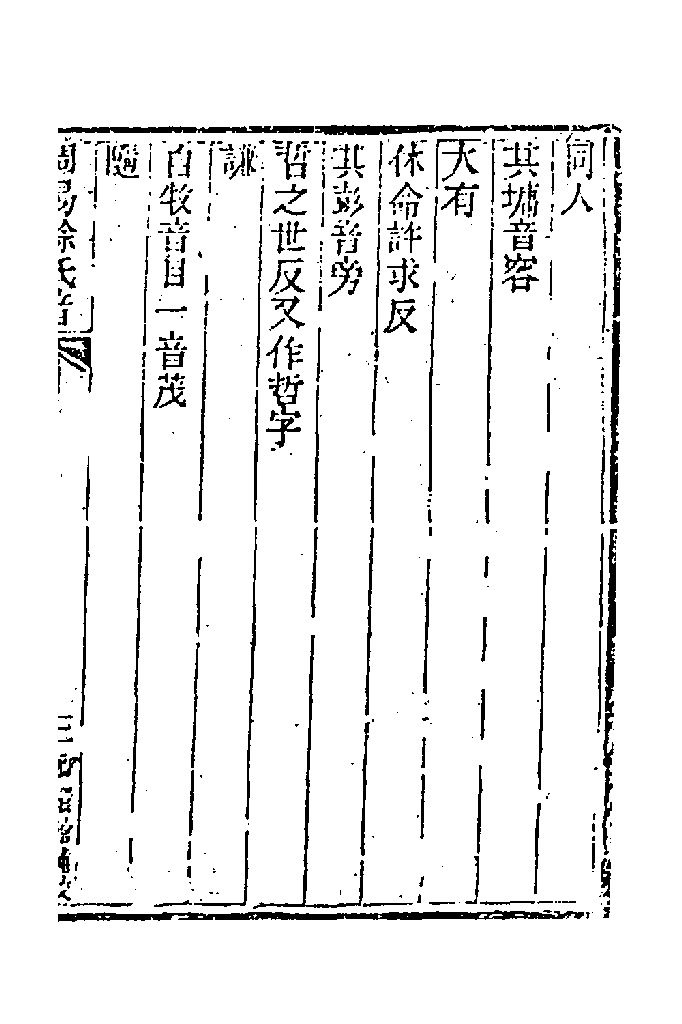 同人
其墉音容
大有
休命許求反
其彭音旁
晢之世反又作哲字
謙
自牧音目一音茂
隨
周易徐氏音
二